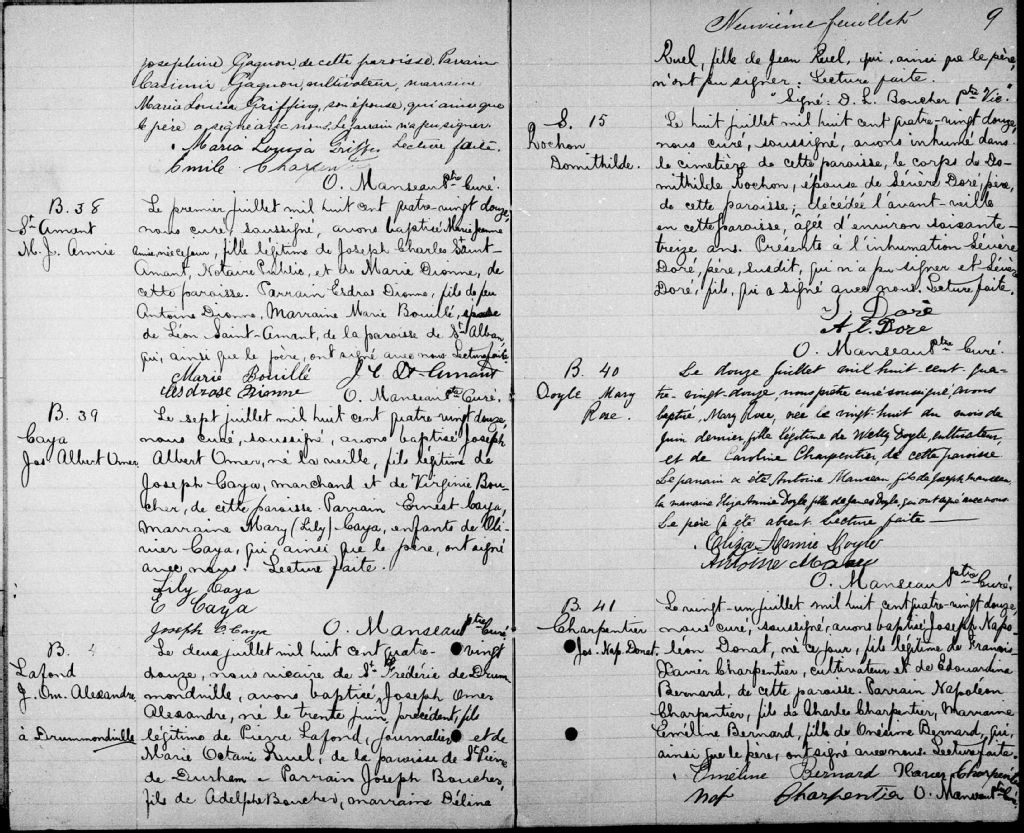 Josephine Gagnon, de cette paroisse, Parrain
Casimir Gagnon, cultivateur, marraine
Maria Louisa Griffing, son épouse, qui ainsi que
le père a signé avec nous. Le parrain n'a pu signer.
Maria Louisa Lecture faite.
Emile
O. Manseau Ptre Curé.
B. 38
St Amant
M. J. Annie
Le premier juillet mil huit cent quatre-vingt douze,
nous curé, soussigné, avons baptisé Marie Jeanne
Annie, née ce jour, fille légitime de Joseph Charles Saint-
Amant, Notaire Public, et de Marie Dionne, de
cette paroisse. Parrain Esdras Dionne, fils de feu
Antoine Dionne, Marraine Marie Bouillé, épouse
de Léon Saint-Amant, de la paroisse de St Alban,
qui, ainsi que le père, ont signé avec nous. Lecture faite.
Marie Bouillé J C St-Amant
Esdrase Dionne O. Manseau Ptre Curé.
B. 39
Caya
Jos Albert Omer
Le sept juillet mil huit cent quatre-vingt douze,
nous curé, soussigné, avons baptisé Joseph
Albert Omer, né la veille, fils légitime de
Joseph Caya, marchand et de Virginie Bou-
cher, de cette paroisse. Parrain Ernest Caya,
marraine Mary (Lily) Caya, enfants de Oli-
vier Caya, qui, ainsi que le père, ont signé
avec nous. Lecture faite.
Lily Caya
E Caya
Joseph Caya O. Manseau ptre Curé
B. 4
Lafond
J. Om. Alexandre
à Drummondville
Le deux juillet mil huit cent quatre-vingt
douze, nous vicaire de St Frédéric de Drum
mondville, avons baptisé, Joseph Omer
Alexandre, né le trente juin, précédent, fils
légitime de Pierre Lafond, journalier et de
Marie Octavie Ruel, de la paroisse de St Pierre
de Durham - Parrain Joseph Boucher,
fils de Adelphe Boucher, marraine Délina
Neuvième feuillet 9
Ruel, fille de Jean Ruel, qui, ainsi que le père,
n'ont pu signer. Lecture faite.
"Signé: D. L. Boucher ptre Vic."
S. 15
Rochon
Domithilde.
Le huit juillet mil huit cent quatre-vingt douze,
nous curé, soussigné, avons inhumé dans
le cimetière de cette paroisse, le corps de Do-
mithilde Rochon, épouse de Sévère Doré, père,
de cette paroisse; décédée l'avant-veille
en cette paroisse, âgée d'environ soixante-
treize ans. Présents à l'inhumation Sévère
Doré, père, susdit, qui n'a pu signer et Sévère
Doré, fils, qui a signé avec nous. Lecture faite.
Doré
A. E. Doré
O. Manseau ptre Curé.
B. 40
Doyle Mary
Rose.
Le douze juillet mil huit-cent qua-
tre-vingt-douze nous prêtre curé soussigné, avons
baptisé Mary Rose, née le vingt-huit du mois de
juin dernier, fille légitime de Doyle, cultivateur,
et de Caroline Charpentier, de cette paroisse
Le parrain a été Antoine Manseau, fils de Joseph Manseau,
la marraine Eliza Annie Doyle fille de James Doyle, qui ont signé avec nous.
Le père a été absent. Lecture faite
Eliza Annie Doyle
Antoine
O. Manseau Ptre Curé.
B. 41
Charpentier
Jos. Nap. Donat.
Le vingt-un juillet mil huit cent quatre-vingt douze,
nous curé, soussigné, avons baptisé Joseph Napo-
léon Donat, né ce jour, fils légitime de François
Xavier Charpentier, cultivateur et de Edouardina
Bernard, de cette paroisse. Parrain Napoléon
Charpentier, fils de Charles Charpentier, Marraine
Eméline Bernard, fille de Onésime Bernard, qui,
ainsi que le père, ont signé avec nous. Lecture faite.
Emeline Bernard Xavier Charpentier
Charpentier O. Manseau ptre Curé